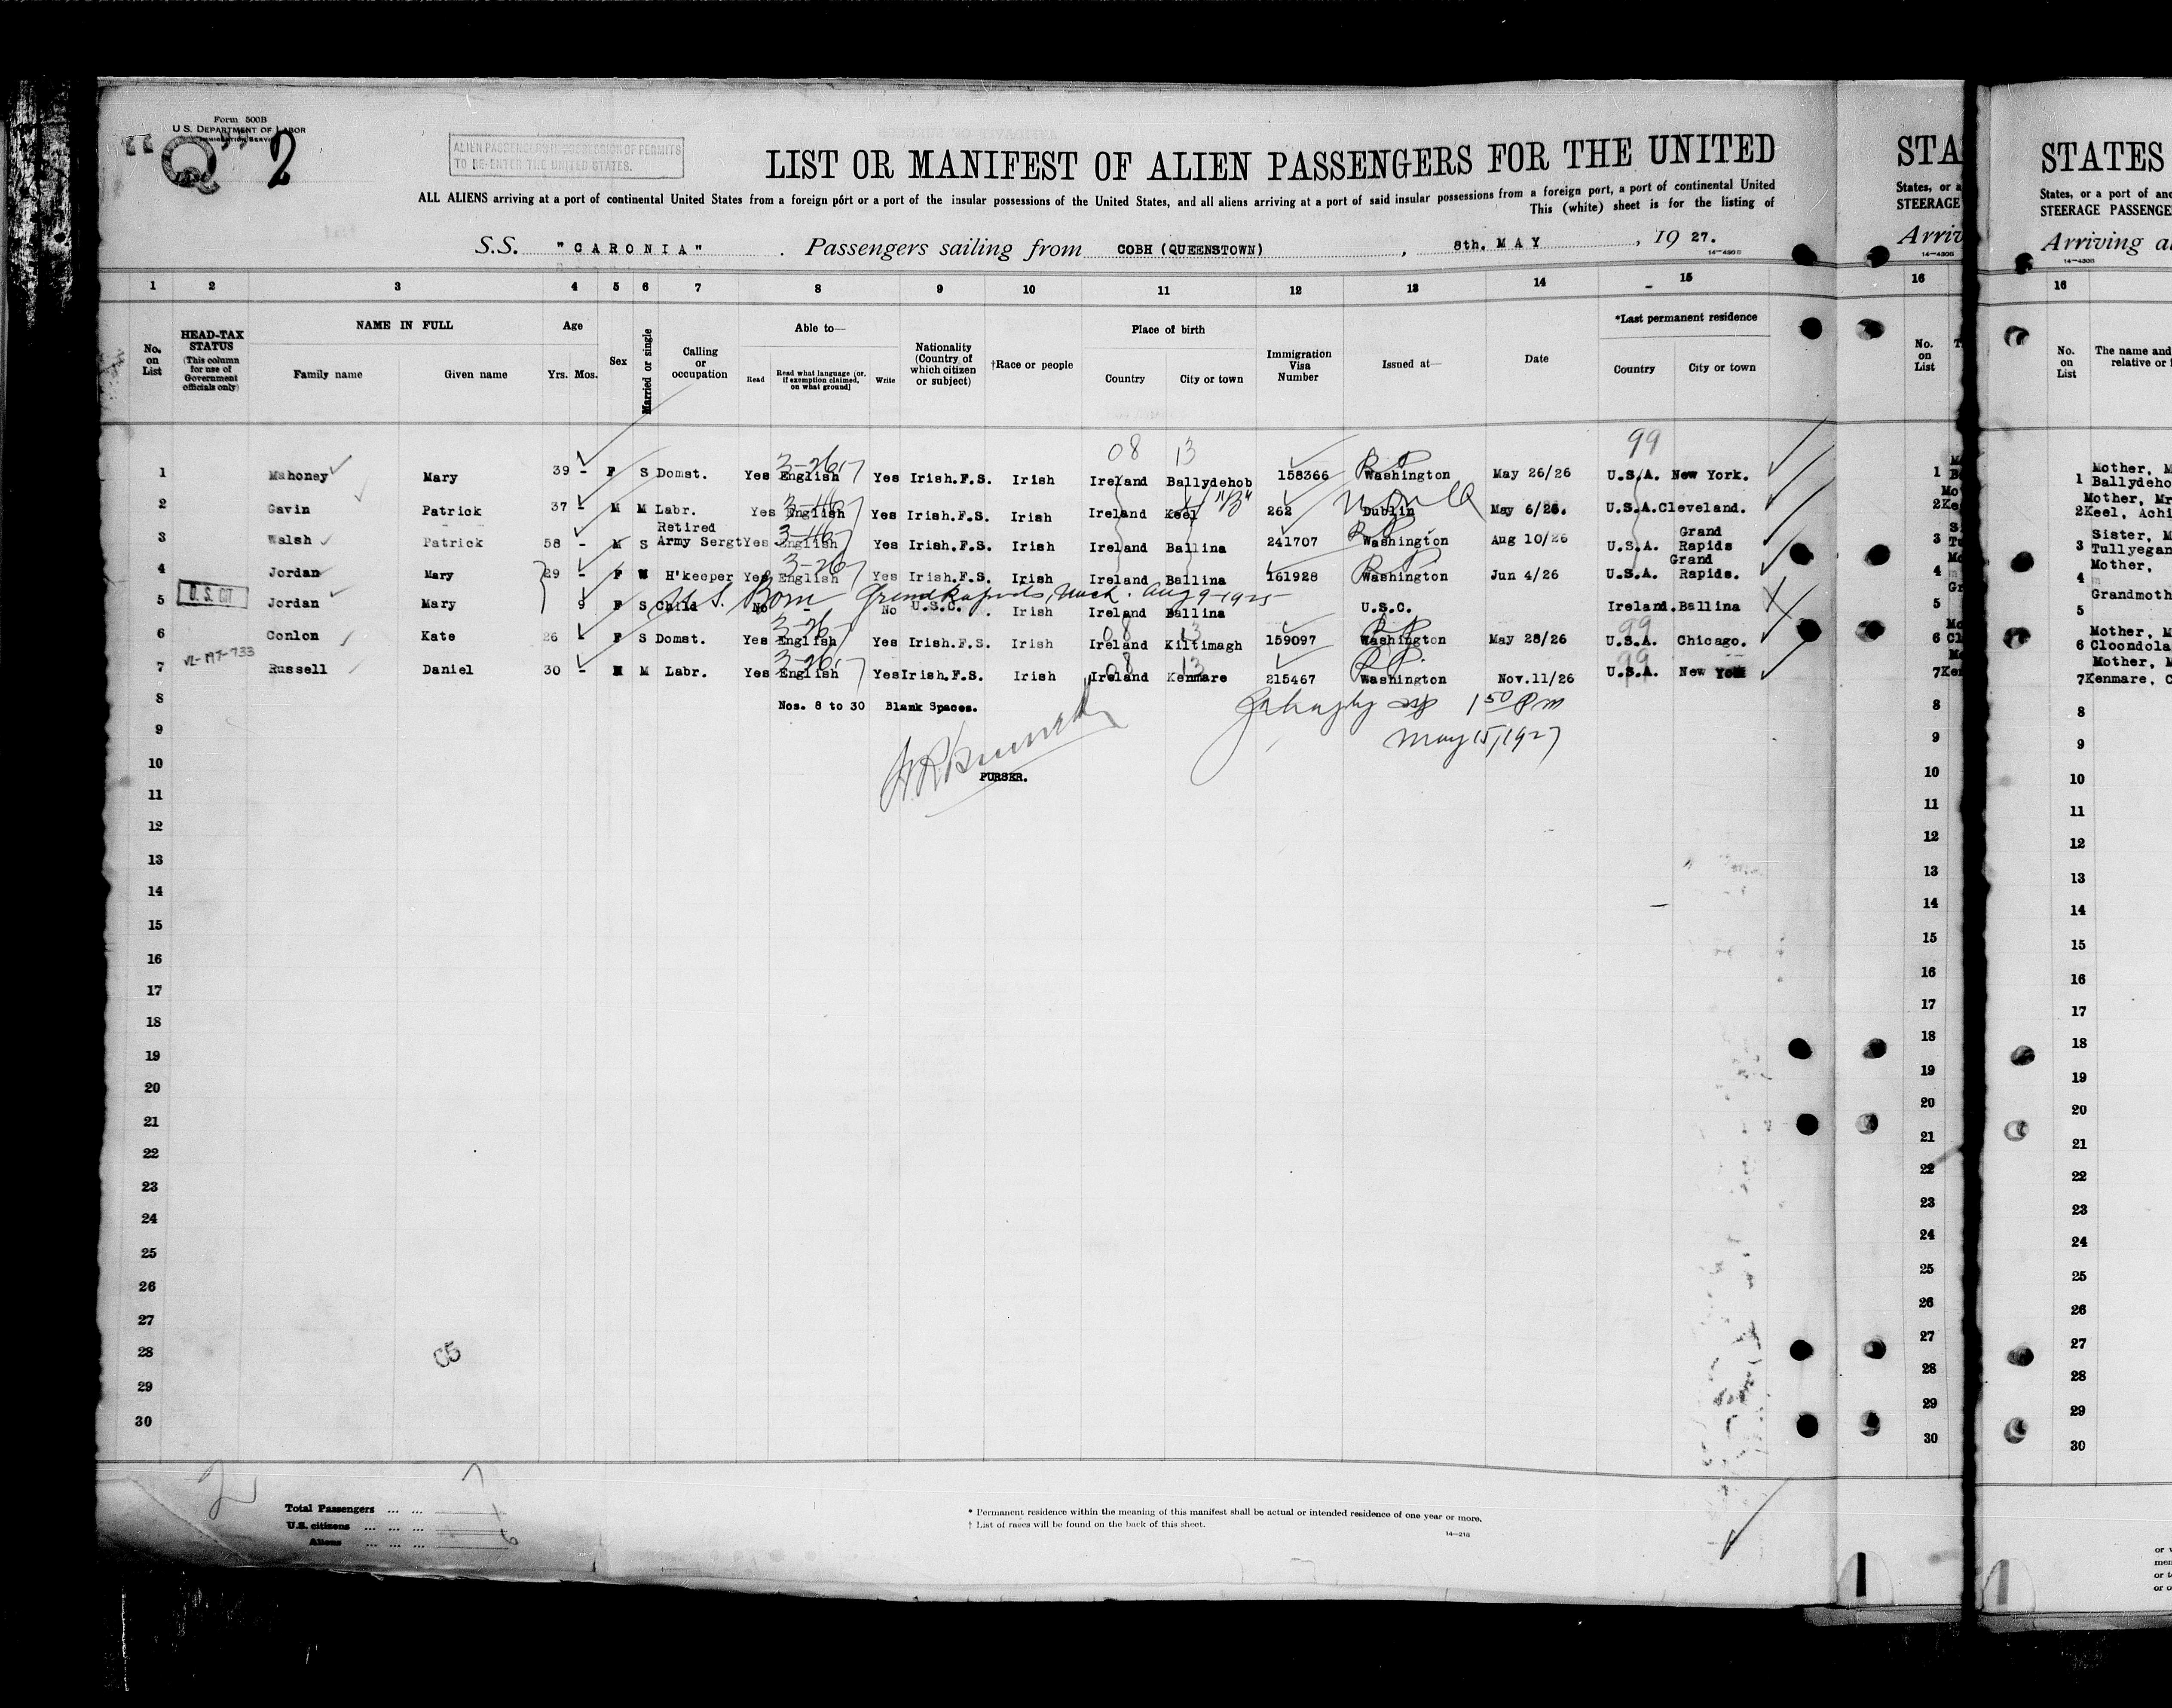 Form 500B
U.S. DEPARTMENT OF LABOR
IMMIGRATION SERVICE
"Q" 2
ALIEN PASSENGERS IN POSSESSION OF PERMITS
TO RE-ENTER THE UNITED STATES.
LIST OR MANIFEST OF ALIEN PASSENGERS FOR THE UNITED
ALL ALIENS arriving at a port of continental United States from a foreign port or a port of the insular possessions of the United States, and all aliens arriving at a port of said insular possessions from a foreign port, a port of continental United
This (white) sheet is for the listing of
S.S. "CARONIA" . Passengers sailing from COBH (QUEENSTOWN) , 8th. MAY , 19 27.
14-430B
1 2 3 4 5 6 7 8 9 10 11 12 13 14 15
No. on List
HEAD-TAX STATUS (This column for use of Government officials only)
NAME IN FULL
Family name Given name
Age
Yrs. Mos.
Sex
Married or single
Calling or occupation
Able to—
Read Read what language (or, if exemption claimed, on what ground) Write
Nationality (Country of which citizen or subject)
†Race or people
Place of birth
Country City or town
Immigration Visa Number
Issued at—
Date
*Last permanent residence
Country City or town
08 13 99
1 Mahoney Mary 39 - F S Domst. Yes English 3-26 Yes Irish.F.S. Irish Ireland Ballydehob 158366 Washington May 26/26 U.S.A. New York.
2 Gavin Patrick 37 - M M Labr. Yes English Yes Irish.F.S. Irish Ireland Keel 262 Dublin May 6/26. U.S.A. Cleveland.
3 Walsh Patrick 58 - M S Retired Army Sergt Yes English Yes Irish.F.S. Irish Ireland Ballina 241707 Washington Aug 10/26 U.S.A. Grand Rapids
4 Jordan Mary 29 - F W H'keeper Yes English 3-26 Yes Irish.F.S. Irish Ireland Ballina 161928 Washington Jun 4/26 U.S.A. Grand Rapids.
U.S. Born Grand Rapids, Mich. Aug 9-1925
U.S. CIT
5 Jordan Mary 9 F S Child No - No U.S.C. Irish Ireland Ballina U.S.C. Ireland. Ballina
6 Conlon Kate 26 - F S Domst. Yes English 3-26 Yes Irish.F.S. Irish Ireland Kiltimagh 08 13 159097 Washington May 28/26 U.S.A. 99 Chicago.
7 Russell Daniel 30 - M M Labr. Yes English 3-26 Yes Irish.F.S. Irish Ireland Kenmare 08 13 215467 Washington Nov.11/26 U.S.A. 99 New York
8 Nos. 8 to 30 Blank Spaces.
1 50 Pm
May 15, 1927
9
10
PURSER.
11
12
13
14
15
16
17
18
19
20
21
22
23
24
25
26
27
28
29
30
05
2
Total Passengers ... ... 7
U.S. citizens ... ... ... 1
Aliens ... ... ... 6
* Permanent residence within the meaning of this manifest shall be actual or intended residence of one year or more.
† List of races will be found on the back of this sheet.
14-218
STA
States, or a
STEERAGE
Arriv
14-430B
16
No. on List
1
2
3
4
5
6
7
8
9
10
11
12
13
14
15
16
17
18
19
20
21
22
23
24
25
26
27
28
29
30
STATES
States, or a port of ano
STEERAGE PASSENGE
Arriving a
14-430B
16
No. on List
The name and
relative or
1 Mother, M
Ballydeho
2 Mother, Mr
Keel, Achi
3 Sister, M
Tullyegan
4 Mother,
Grandmoth
5
6 Mother, M
Cloondola
7 Mother, M
Kenmare, C
8
9
10
11
12
13
14
15
16
17
18
19
20
21
22
23
24
25
26
27
28
29
30